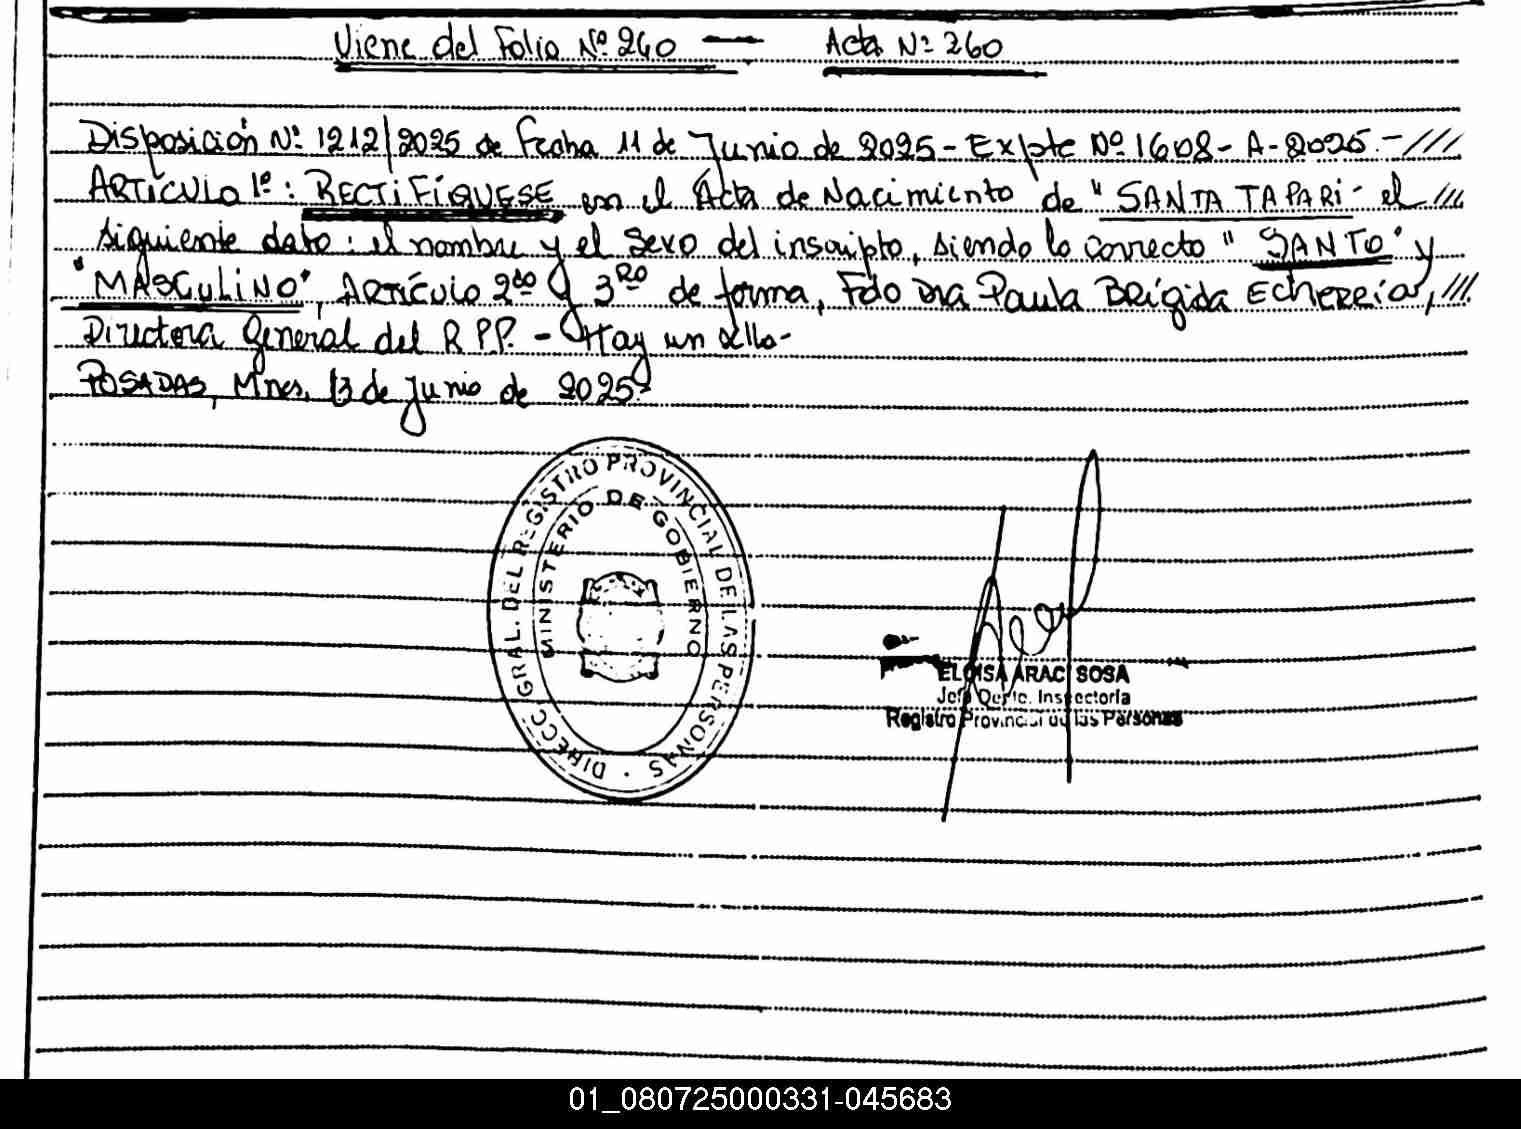 Viene del Folio Nº 260 — Acta Nº 260
Disposición Nº 1212/2025 de Fecha 11 de Junio de 2025 - Expte Nº 1608 - A - 2025.- ///
ARTÍCULO 1º: RECTIFÍQUESE en el Acta de Nacimiento de "SANTA TAPARI- el ///
siguiente dato: el nombre y el sexo del inscripto, siendo lo correcto "SANTO" y
"MASCULINO", ARTÍCULO 2do y 3RO de forma, Fdo Dra Paula BRÍGIDA ECHERRÍA, ///
Directora General del RPP. - Hay un sello-
POSADAS, Mnes, 13 de Junio de 2025-
DIRECC GRAL. DEL REGISTRO PROVINCIAL DE LAS PERSONAS
MINISTERIO DE GOBIERNO
ELOISA ARACI SOSA
Jefa Depto. Inspectoría
Registro Provincial de las Personas
01_080725000331-045683